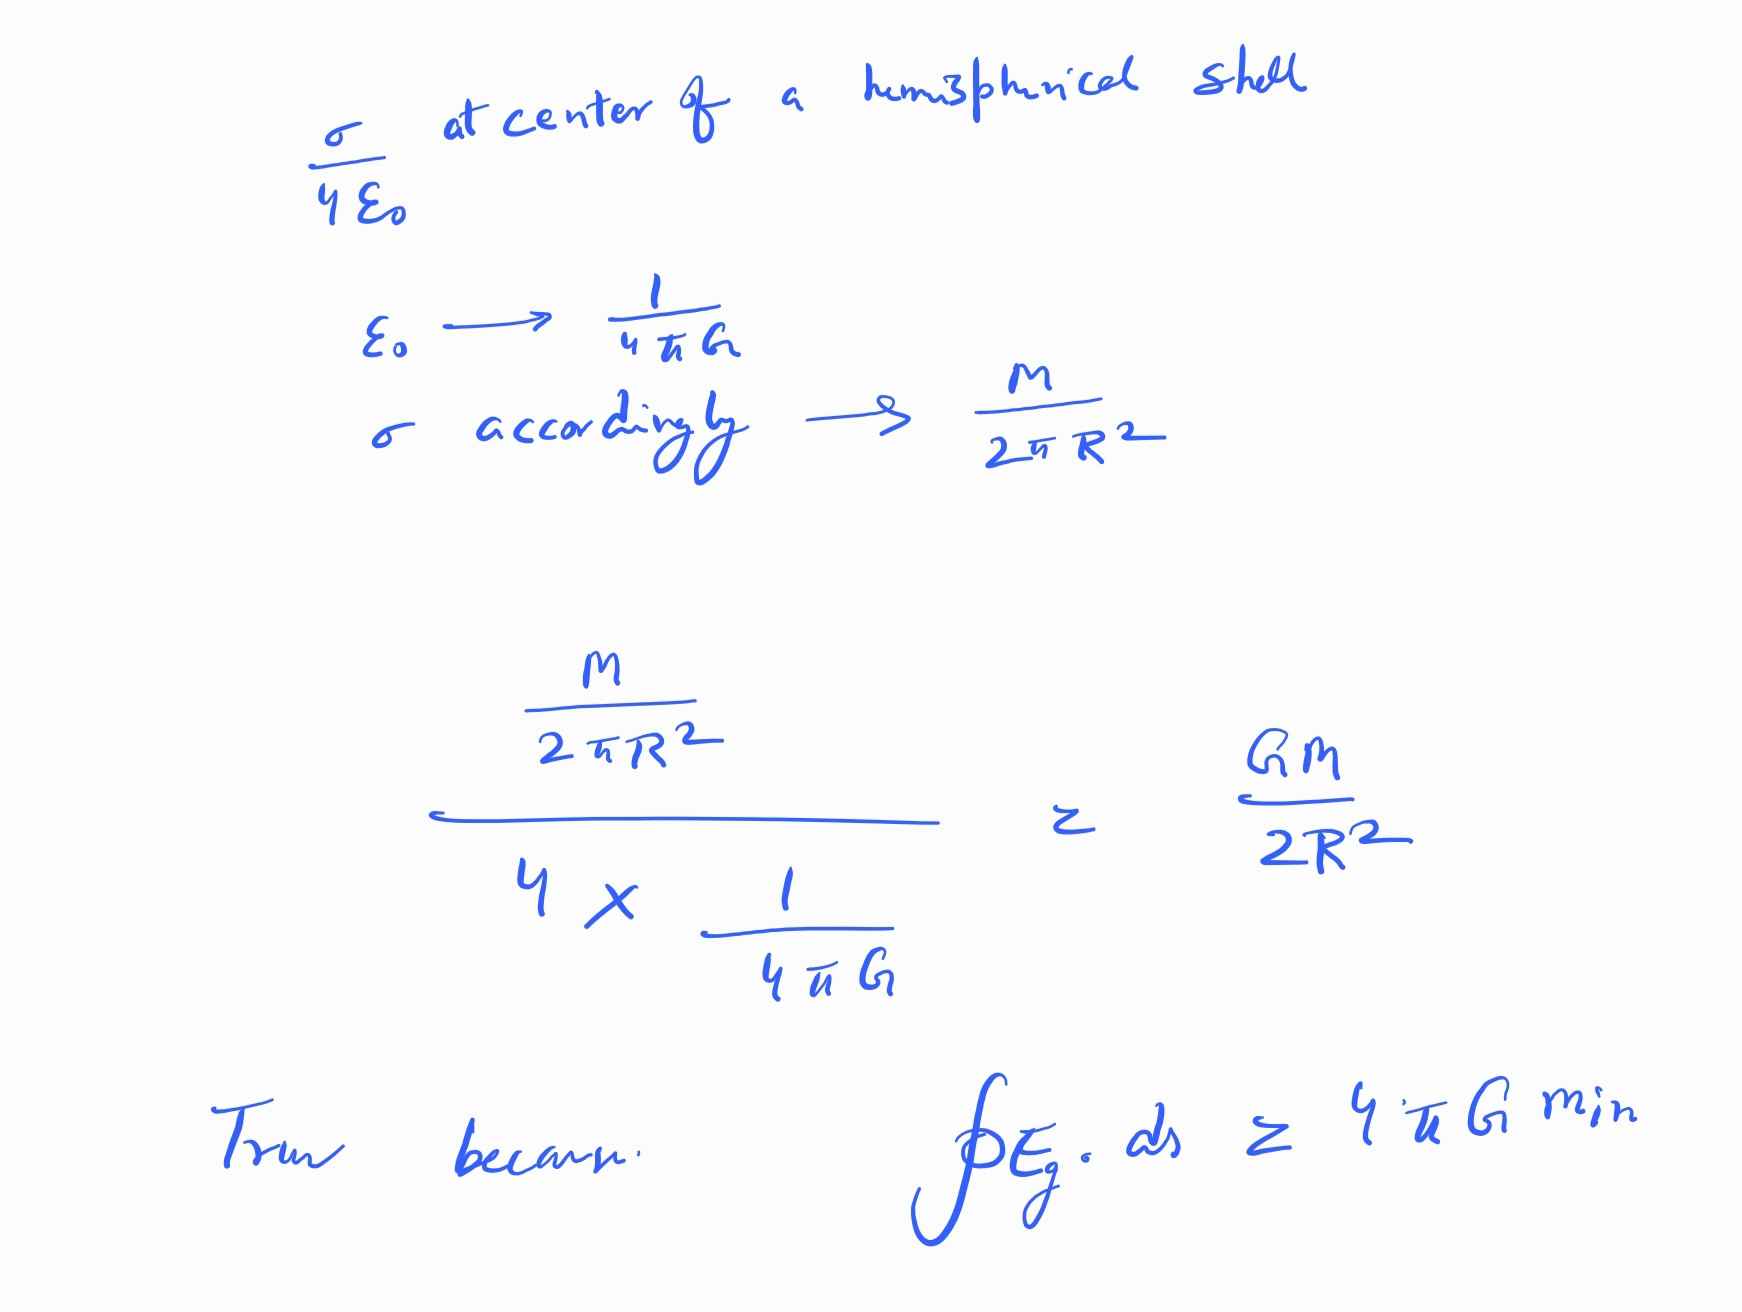 σ/(4ε₀) at center of a hemispherical shell
ε₀ → 1/(4πG)
σ accordingly → M/(2πR²)
(M/(2πR²))/(4 × 1/(4πG)) = GM/(2R²)
True because. ∮E_g . ds = 4πG m_in